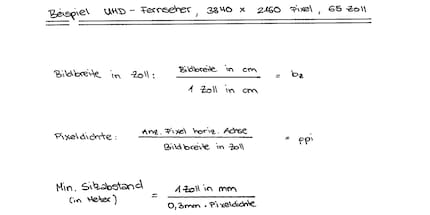 Beispiel UHD - Fernseher, 3840 x 2160 Pixel, 65 Zoll
Bildbreite in Zoll: Bildbreite in cm / 1 Zoll in cm = bz
Pixeldichte: Anz. Pixel horiz. Achse / Bildbreite in Zoll = ppi
Min. Sitzabstand (in Meter) = 1 Zoll in mm / 0,3mm · Pixeldichte